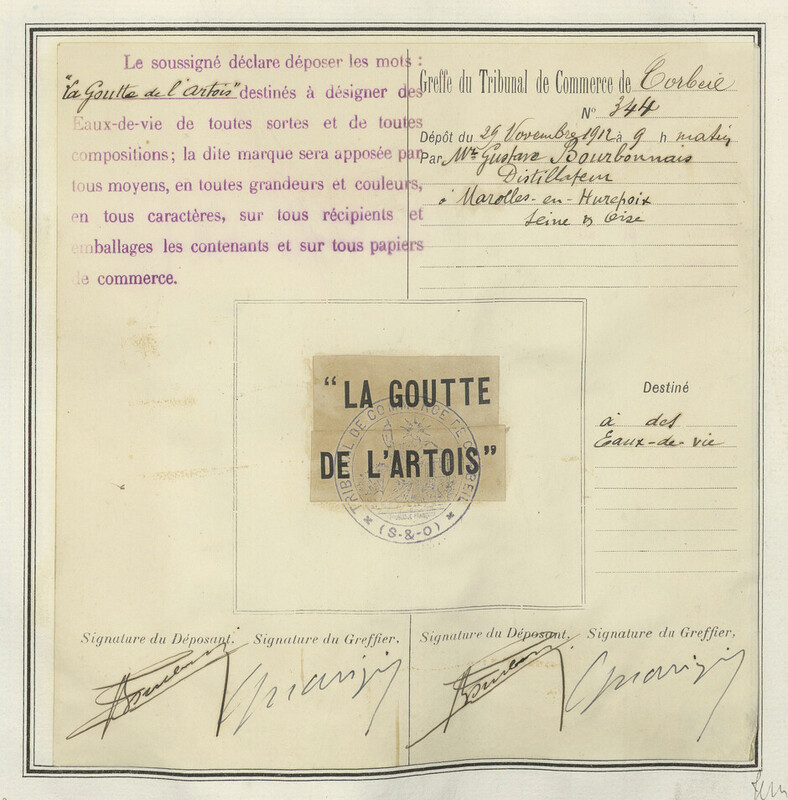 Le soussigné déclare déposer les mots :
"La Goutte de l'Artois" destinés à désigner des
Eaux-de-vie de toutes sortes et de toutes
compositions; la dite marque sera apposée par
tous moyens, en toutes grandeurs et couleurs,
en tous caractères, sur tous récipients et
emballages les contenants et sur tous papiers
de commerce.
Greffe du Tribunal de Commerce de Corbeil
N° 344
Dépôt du 29 Novembre 1912 à 9 h matin
Par Mr. Gustave Bourbonnais
Distillateur
à Marolles-en-Hurepoix
Seine & Oise
"LA GOUTTE
DE L'ARTOIS"
TRIBUNAL DE COMMERCE DE CORBEIL
(S-&-O)
Destiné
à des
Eaux-de-vie
Signature du Déposant. Signature du Greffier.
Signature du Déposant. Signature du Greffier.